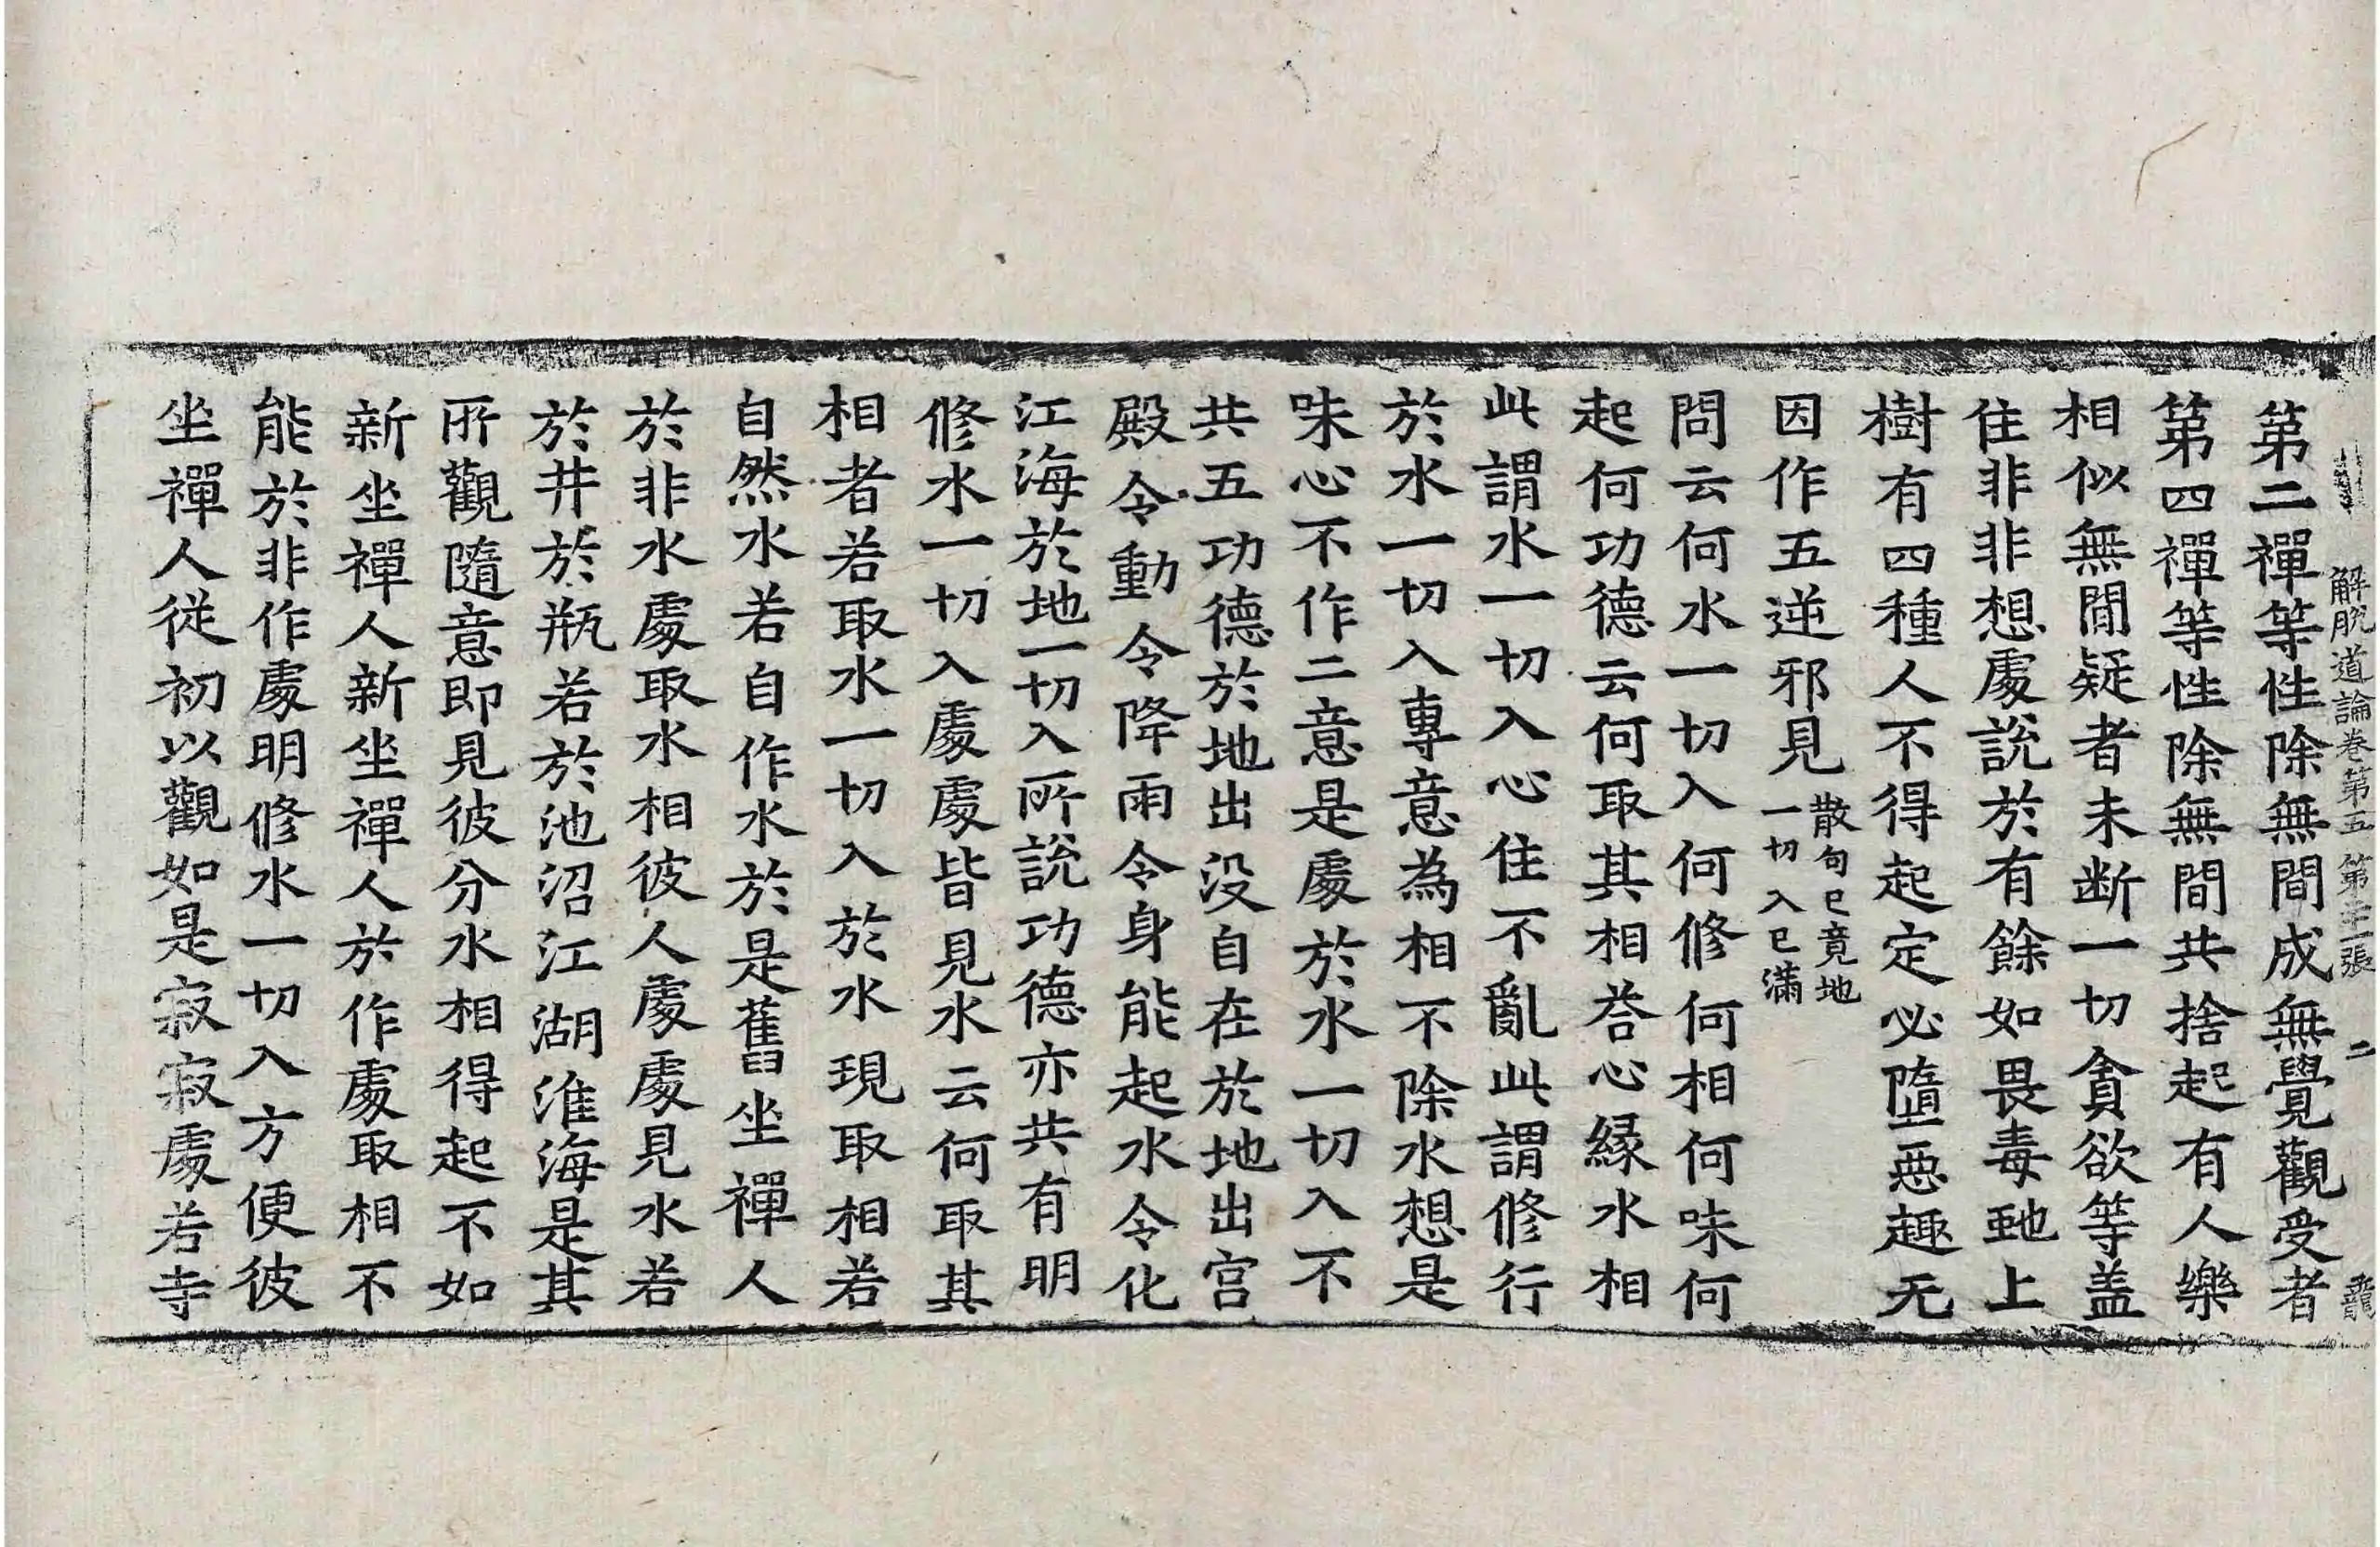 解脫道論卷第五 第二張 二
第二禪等性除無間成無覺觀受者
第四禪等性除無間共捨起有人樂
相似無閒疑者未断一切貪欲等盖
住非非想處說於有餘如畏毒虵上
樹有四種人不得起定必墮惡趣无
因作五逆邪見散句已竟地一切入已滿
問云何水一切入何修何相何味何
起何功德云何取其相荅心縁水相
此謂水一切入心住不亂此謂修行
於水一切入專意為相不除水想是
味心不作二意是處於水一切入不
共五功德於地出没自在於地出宫
殿令動令降雨令身能起水令化
江海於地一切入所說功德亦共有明
修水一切入處處皆見水云何取其
相者若取水一切入於水現取相若
自然水若自作水於是舊坐禪人
於非水處取水相彼人處處見水若
於井於瓶若於池沼江湖淮海是其
所觀隨意即見彼分水相得起不如
新坐禪人新坐禪人於作處取相不
能於非作處明修水一切入方便彼
坐禪人從初以觀如是寂寂處若寺